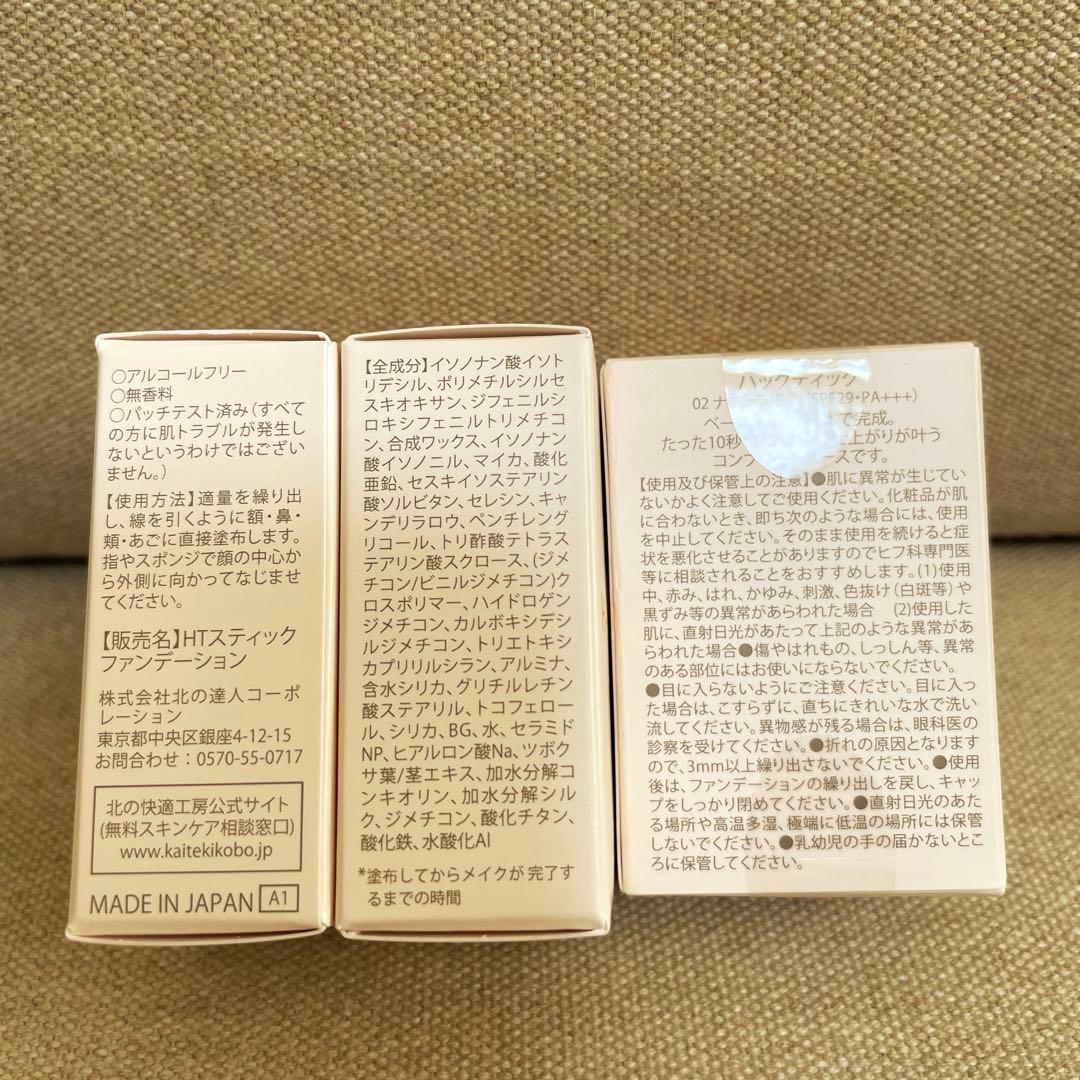 ○アルコールフリー
○無香料
○パッチテスト済み(すべて
の方に肌トラブルが発生し
ないというわけではござい
ません。)
【使用方法】適量を繰り出
し、線を引くように額・鼻・
頬・あごに直接塗布します。
指やスポンジで顔の中心か
ら外側に向かってなじませ
てください。
【販売名】HTスティック
ファンデーション
株式会社北の達人コーポ
レーション
東京都中央区銀座4-12-15
お問合わせ:0570-55-0717
北の快適工房公式サイト
(無料スキンケア相談窓口)
www.kaitekikobo.jp
MADE IN JAPAN A1
【全成分】イソノナン酸イソト
リデシル、ポリメチルシルセ
スキオキサン、ジフェニルシ
ロキシフェニルトリメチコ
ン、合成ワックス、イソノナン
酸イソノニル、マイカ、酸化
亜鉛、セスキイソステアリン
酸ソルビタン、セレシン、キャ
ンデリラロウ、ペンチレング
リコール、トリ酢酸テトラス
テアリン酸スクロース、(ジメ
チコン/ビニルジメチコン)ク
ロスポリマー、ハイドロゲン
ジメチコン、カルボキシデシ
ルジメチコン、トリエトキシ
カプリリルシラン、アルミナ、
含水シリカ、グリチルレチン
酸ステアリル、トコフェロー
ル、シリカ、BG、水、セラミド
NP、ヒアルロン酸Na、ツボク
サ葉/茎エキス、加水分解コ
ンキオリン、加水分解シル
ク、ジメチコン、酸化チタン、
酸化鉄、水酸化Al
*塗布してからメイクが完了す
るまでの時間
ハックティック
02 ナチュラル (SPF29・PA+++)
ベー で完成。
たった10秒 上がりが叶う
コン ースです。
【使用及び保管上の注意】●肌に異常が生じてい
ないかよく注意してご使用ください。化粧品が肌
に合わないとき、即ち次のような場合には、使用
を中止してください。そのまま使用を続けると症
状を悪化させることがありますのでヒフ科専門医
等に相談されることをおすすめします。(1)使用
中、赤み、はれ、かゆみ、刺激、色抜け(白斑等)や
黒ずみ等の異常があらわれた場合 (2)使用した
肌に、直射日光があたって上記のような異常があ
らわれた場合●傷やはれもの、しっしん等、異常
のある部位にはお使いにならないでください。
●目に入らないようにご注意ください。目に入っ
た場合は、こすらずに、直ちにきれいな水で洗い
流してください。異物感が残る場合は、眼科医の
診察を受けてください。●折れの原因となります
ので、3mm以上繰り出さないでください。●使用
後は、ファンデーションの繰り出しを戻し、キャッ
プをしっかり閉めてください。●直射日光のあた
る場所や高温多湿、極端に低温の場所には保管
しないでください。●乳幼児の手の届かないとこ
ろに保管してください。